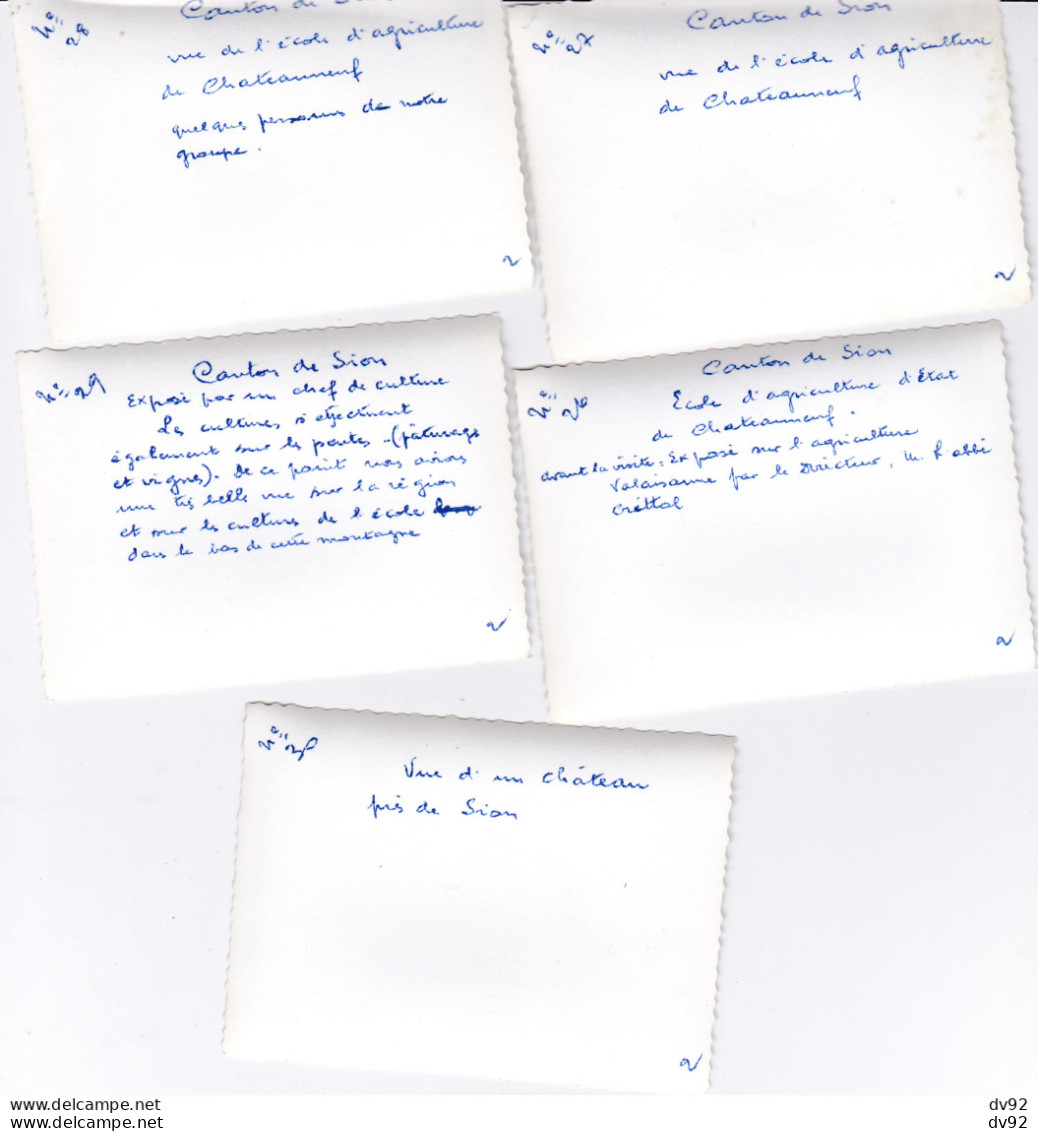 N° 28
Canton de
vue de l'école d'agriculture
de Chateauneuf
quelques personnes de notre
groupe.
2
N° 27
Canton de Sion
vue de l'école d'agriculture
de Chateauneuf
2
N° 29
Canton de Sion
Exposé par un chef de culture
Les cultures s'effectuent
également sur les pentes - (pâturages
et vignes). De ce point nous avions
une très belle vue sur la région
et sur les cultures de l'école
dans le bas de cette montagne
2
N° 26
Canton de Sion
Ecole d'agriculture d'Etat
de Chateauneuf.
avant la visite : Exposé sur l'agriculture
Valaisanne par le Directeur, M. l'abbé
Crettol
2
N°
Vue d'un château
près de Sion
2
dv92
dv92